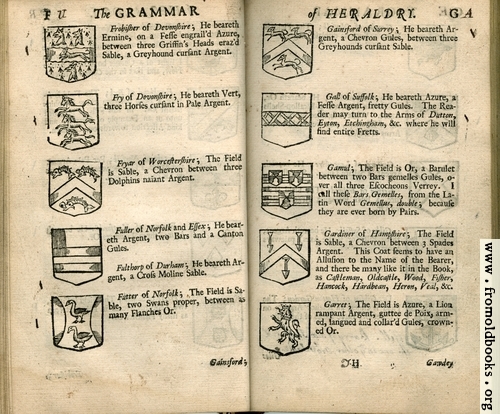 F U The GRAMMAR
Frobisher of Devonshire; He beareth
Ermine, on a Fesse engrail'd Azure,
between three Griffin's Heads eraz'd
Sable, a Greyhound cursant Argent.
Fry of Devonshire; He beareth Vert,
three Horses cursant in Pale Argent.
Fryar of Worcestershire; The Field
is Sable, a Chevron between three
Dolphins naiant Argent.
Fuller of Norfolk and Essex; He bear-
eth Argent, two Bars and a Canton
Gules.
Fulthorp of Durham; He beareth Ar-
gent, a Crois Moline Sable.
Fatter of Norfolk; The Field is Sa-
ble, two Swans proper, between as
many Flanches Or.
Gainsford;
of HERALDRY. G A
Gainsford of Surrey; He beareth Ar-
gent, a Chevron Gules, between three
Greyhounds cursant Sable.
Gall of Suffolk; He beareth Azure, a
Fesse Argent, fretty Gules. The Rea-
der may turn to the Arms of Dutton,
Eyton, Etchingham, &c. where he will
find entire Fretts.
Gamul; The Field is Or, a Barulet
between two Bars gemelles Gules, o-
ver all three Escocheons Verrey. I
call these Bars Gemelles, from the La-
tin Word Gemellus, double; because
they are ever born by Pairs.
Gardiner of Hampshire; The Field
is Sable, a Chevron between 3 Spades
Argent. This Coat seems to have an
Allusion to the Name of the Bearer,
and there be many like it in the Book,
as Castleman, Oldcastle, Wood, Fisher,
Hancock, Hardbean, Heron, Veal, &c.
Garret; The Field is Azure, a Lion
rampant Argent, guttee de Poix, arm-
ed, langued and collar'd Gules, crown-
ed Or.
H Gawdey
www.fromoldbooks.org